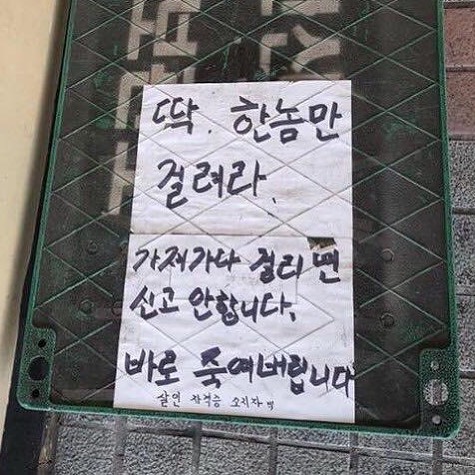 딱. 한놈만
걸려라.
가져가다
신고 안합니다.
바로 죽여버립니다
살인 자격증 소지자